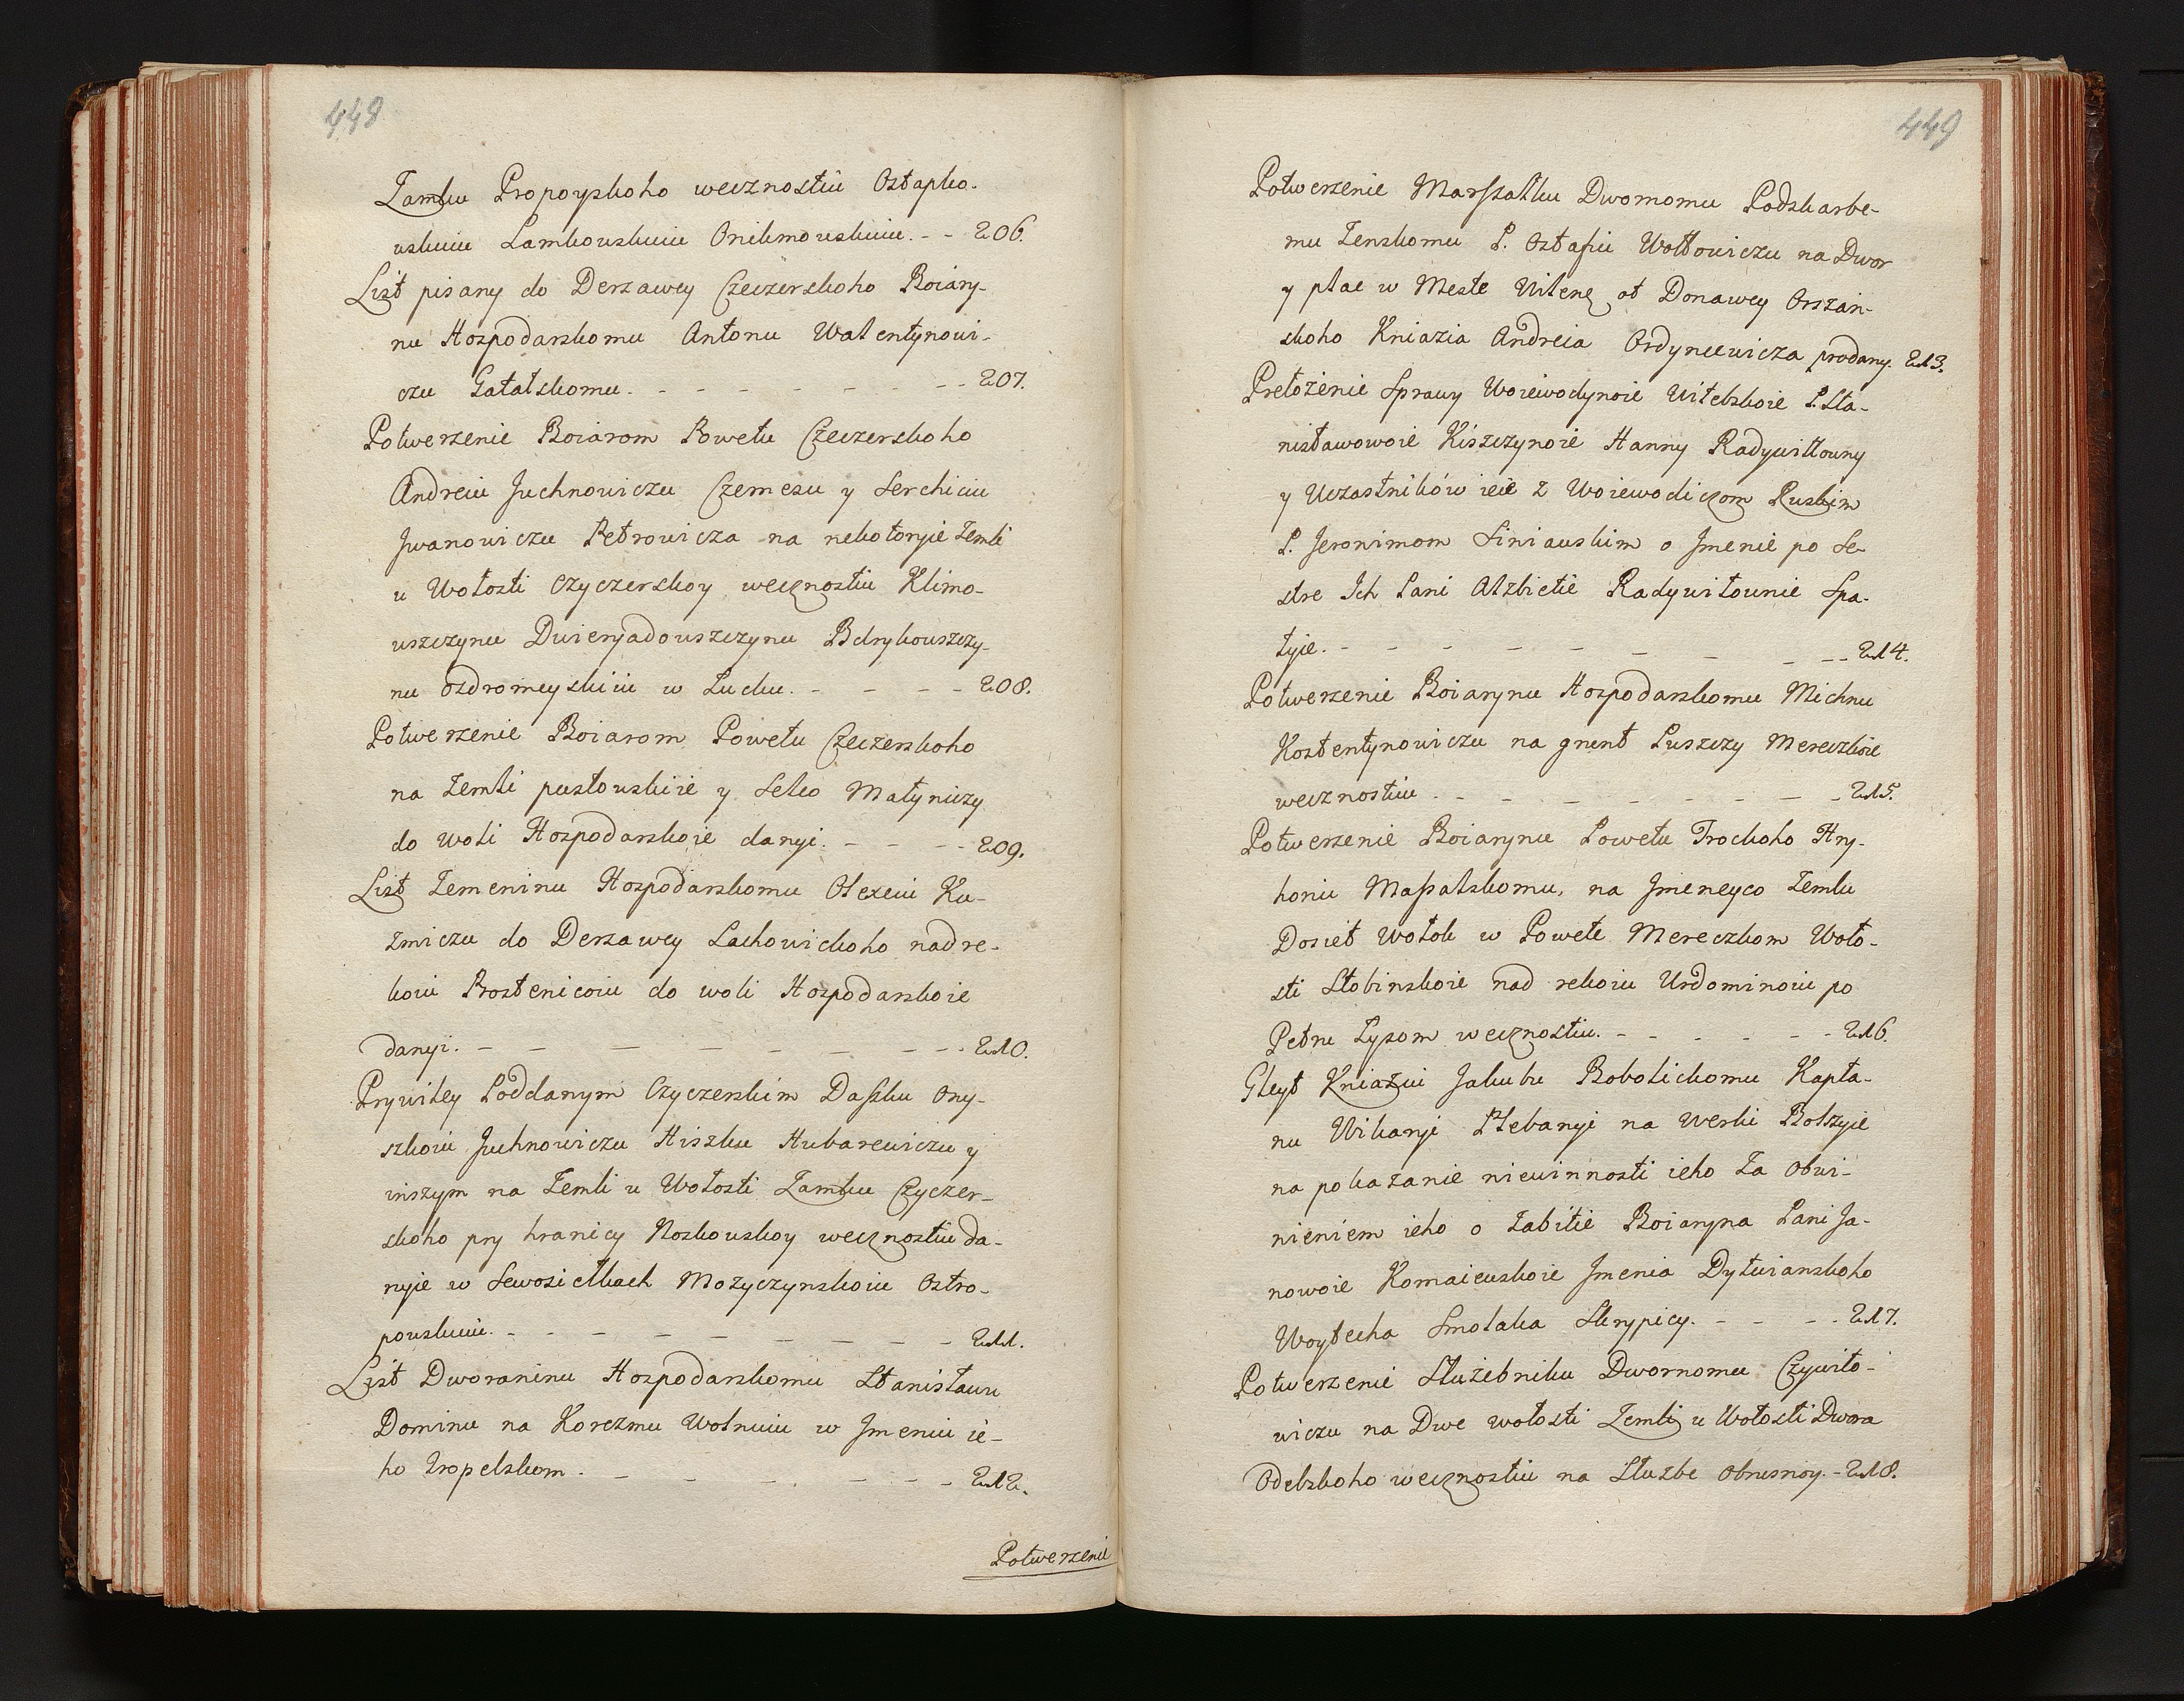 448
Zamku Propoyskoho wecznostiu Ostapko-
uskuiu Lamkouskuiu Onikimouskuiu. - - 206.
List pisany do Derzawcy Czeczerskoho Boiary-
nu Hospodarskomu Antonu Walentynowi-
czu Gatalskomu. - - - - - - - - 207.
Potwerzenie Boiarom Powetu Czeczerskoho
Andreiu Juchnowiczu Czemesu y Serchieiu
Jwanowiczu Petrowicza na nekotoryie Zemli
u Wołosti Czyczerskoy wecznostiu Klimo-
uszczynu Dwieryadouszczynu Bdrykouszczy-
nu Ozdromeyskiiu w Łucku. - - - - 208.
Potwerzenie Boiarom Powetu Czeczerskoho
na Zemli pustouskiie y Seło Małyniczy
do woli Hospodarskoie danyi. - - - - 209.
List Zemeninu Hospodarskomu Olexeiu Ku-
zmiczu do Derzawcy Lachowickoho nad re-
koiu Prostenicoiu do woli Hospodarskoie
danyi. - - - - - - - - - 210.
Prywiley Poddanym Czyczerskim Daszku Ony-
szkoiu Juchnowiczu Hiszku Hubarewiczu y
inszym na Zemli u Wołosti Zamku Czyczer-
skoho pry hranicy Noskouskoy wecznostiu da-
nyie w Sewosietkach Mozyczynskoiu Ostro-
pouskuiu. - - - - - - - - 211.
List Dworaninu Hospodarskomu Stanisławu
Dominu na Korczmu Wolnuiu w Jmeniu ie-
ho Uropelskom. - - - - - - - 212.
Potwerzenie
449
Potwerzenie Marszałku Dwornomu Podskarbe-
mu Zemskomu P. Ostafiu Wołłowiczu na Dwor
y płac w Meste Wilenę ot Donawcy Orszan-
skoho Kniazia Andreia Ordyncewicza prodany. 213.
Prełożenie Sprawy Woiewodynoie Witebskoie P. Sta-
nisławowoie Kiszczynoie Hanny Radywiłłowny
y Uczastników ieie z Woiewodiczom Ruskim
P. Jeronimom Siniauskim o Jmenie po Se-
stre Ich Pani Alzbietie Radywiłounie Spa-
łyie. - - - - - - - - - 214.
Potwerzenie Boiarynu Hospodarskomu Michnu
Kostentynowiczu na grunt Puszczy Mereczkoie
wecznostiu. - - - - - - - - 215.
Potwerzenie Boiarynu Powetu Trockoho Hry-
horiu Massalskomu, na Jmeneyco Zemlu
Dosiet Wołok w Powete Mereczkom Woło-
sti Słobinskoie nad rekoiu Urdominoiu po
Petru Łysom wecznostiu. - - - - - 216.
Gleyt Kniaziu Jakubu Bobolickomu Kapła-
nu Wikaryi Plebanyi na Werki Bolszyie
na pokazanie niewinnosti ieho za obwi-
nieniem ieho o zabitie Boiaryna Pani Ja-
nowoie Komaieuskoie Jmenia Dytwianskoho
Woytecha Smolaka Skrypicy. - - - - 217.
Potwerzenie Służebniku Dwornomu Czywiło-
wiczu na Dwe wołosti Zemli u Wołosti Dwora
Odelskoho wecznostiu na Słuzbe Obrusnoy. - 218.